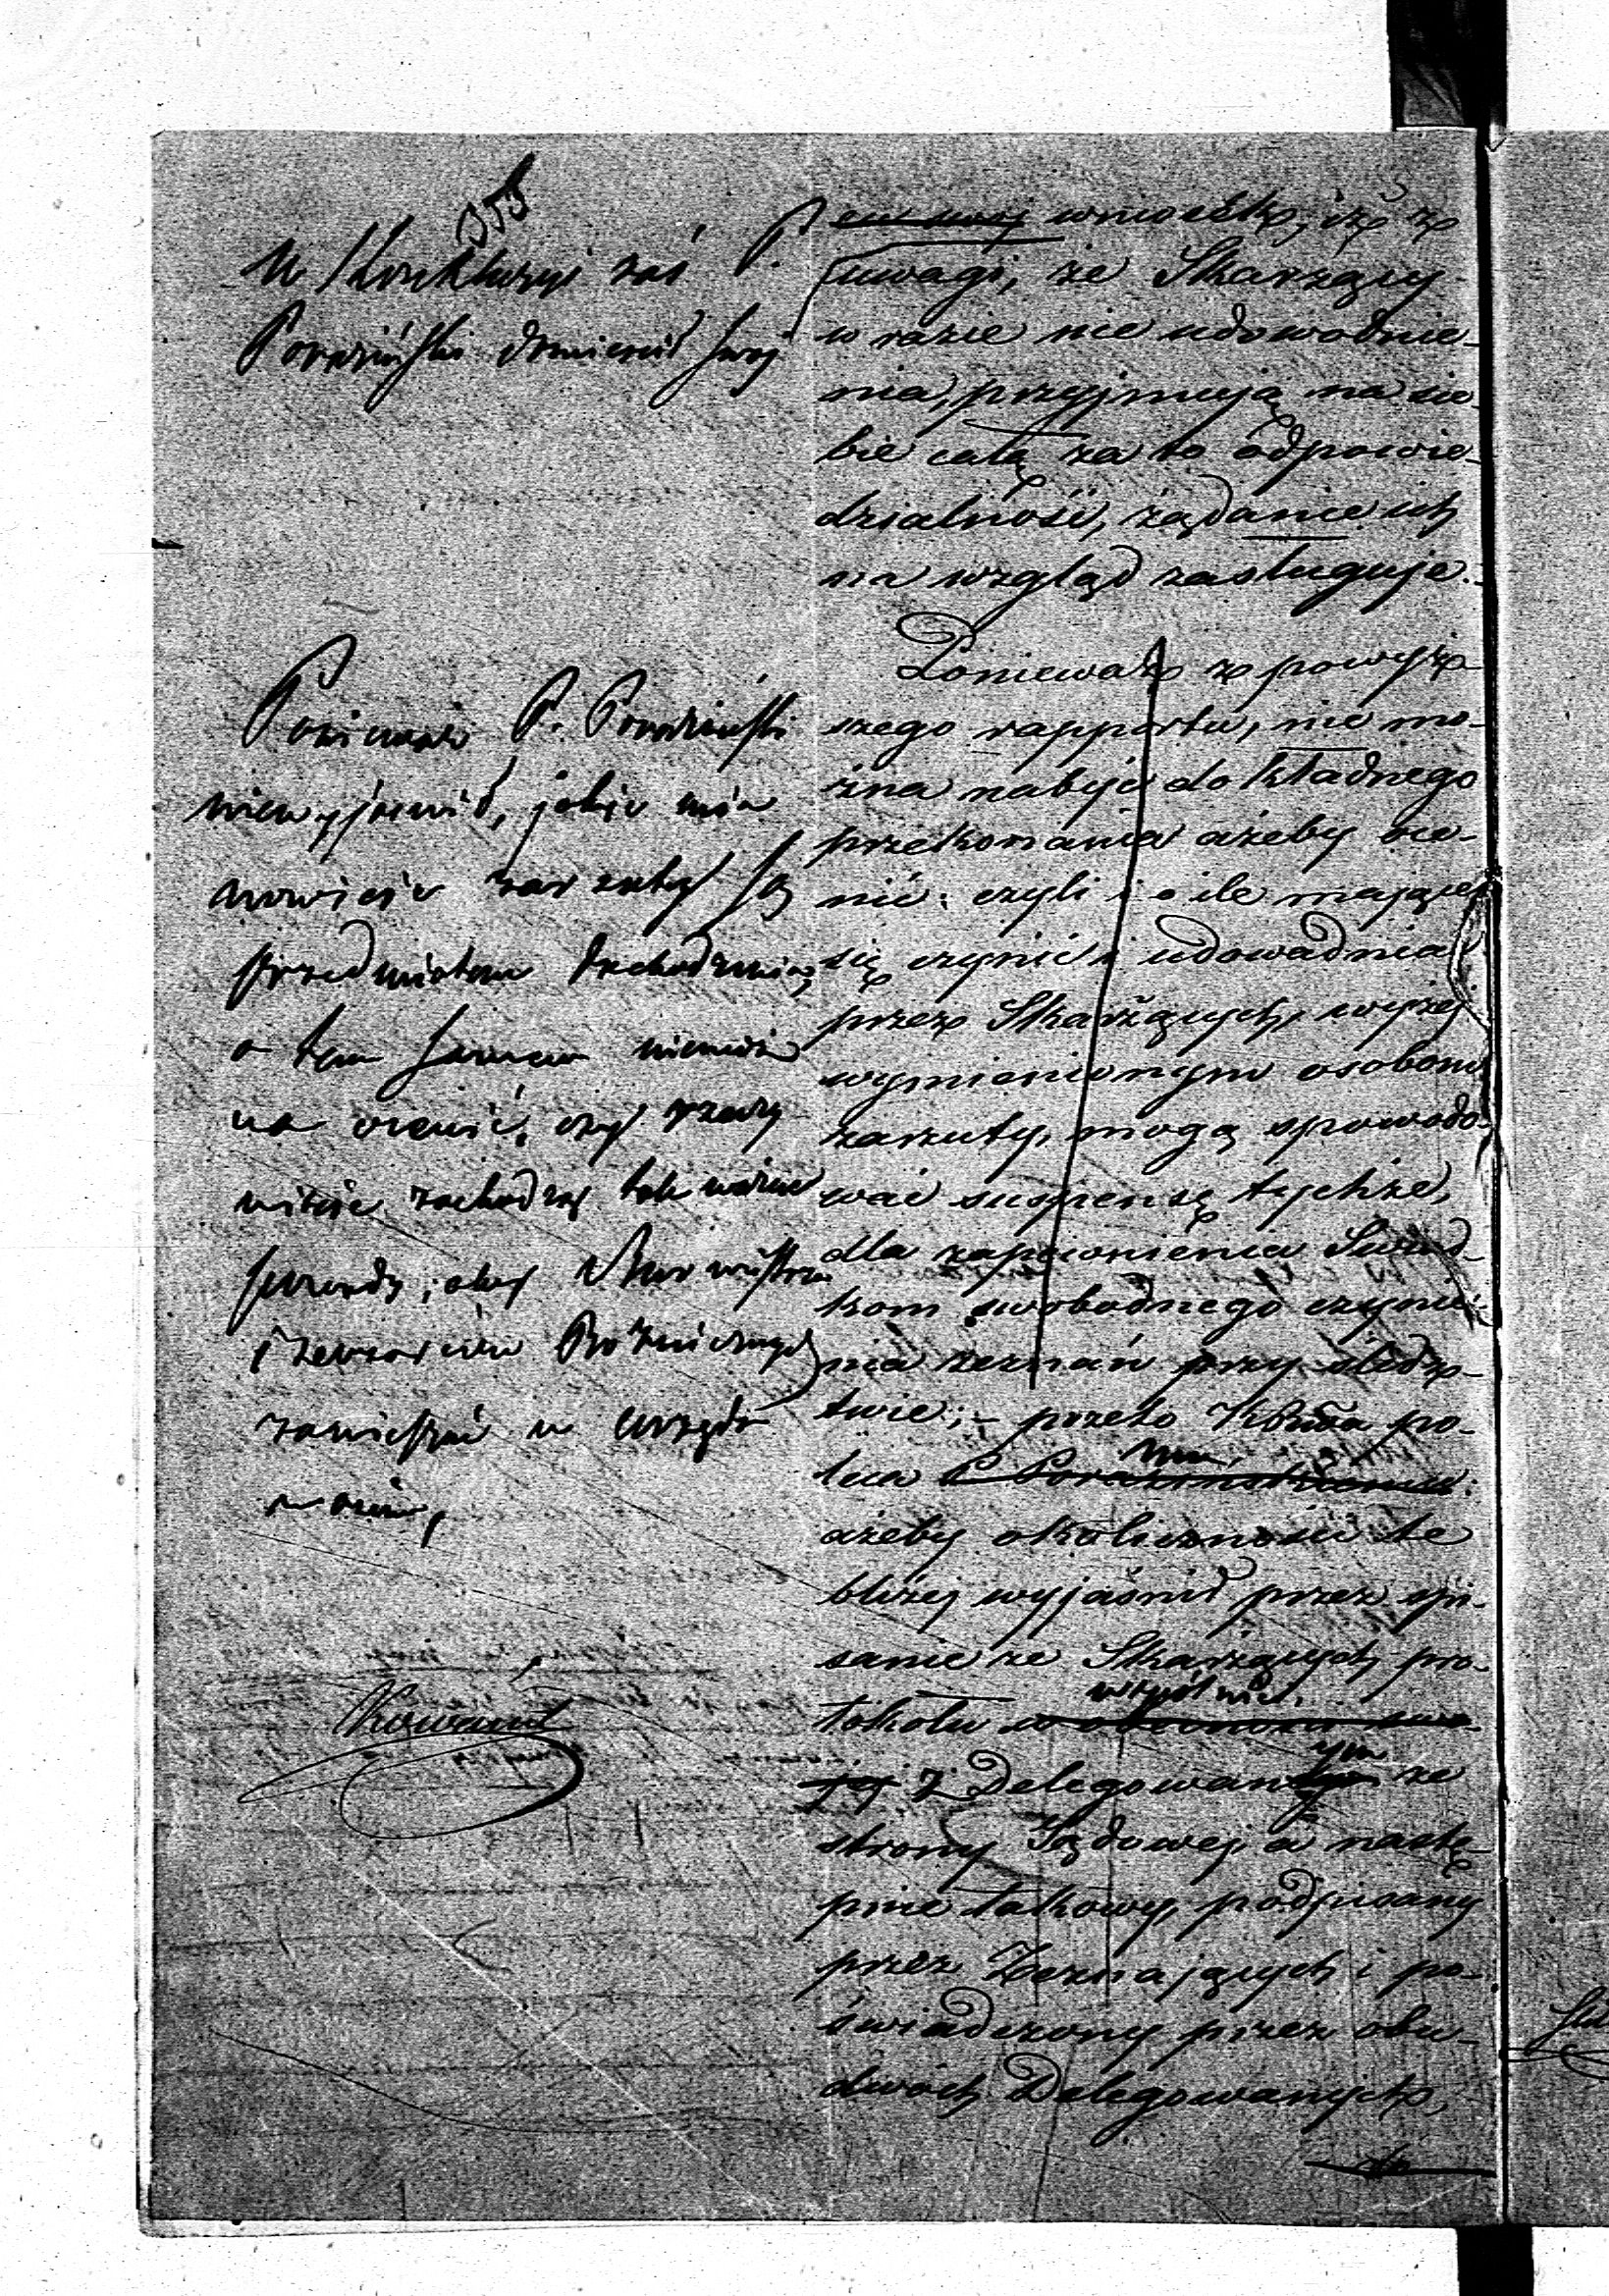 W Konkluzyi zaś P.
Poraziński domieścił swoj
Ponieważ P. Poraziński
niewyjaśnił, jakie mia
nowicie zarzuty są
przedmiotem dochodzenia,
o tem samem niemoż
na ocenić, czy rzeczy
wiście zachodzą tak ważne
powody, aby Burmistrza
i Dozorców Bożniczych
zawiesić w urzędo
waniu,
wniosek, iż z
uwagi, że Skarżący
w razie nie udowodnie-
nia, przyjmują na sie-
bie całą za to odpowie-
dzialność, żądanie ich
na wzgląd zasługuje.
Ponieważ z powyż-
szego rapportu, nie mo-
żna nabyć dokładnego
przekonania ażeby oce-
nić: czyli i o ile mające
się czynić i udowadniać
przez Skarżących, wyżej
wymienionym osobom
zarzuty, mogą spowodo-
wać suspensę tychże,
dla zapewnienia Świad-
kom swobodnego czynie-
nia zeznań przy śledz-
twie; – przeto Kommissya po-
leca P. Porazińskiemu mu,
ażeby okoliczności te
bliżej wyjaśnił przez spi-
sanie ze Skarżących pro-
tokołu w obecności swo- wspólnie
jej z Delegowanym ze
strony Sądowej, a nastę-
pnie takowy, podpisany
przez Zeznających i po-
świadczony przez obu-
dwóch Delegowanych,